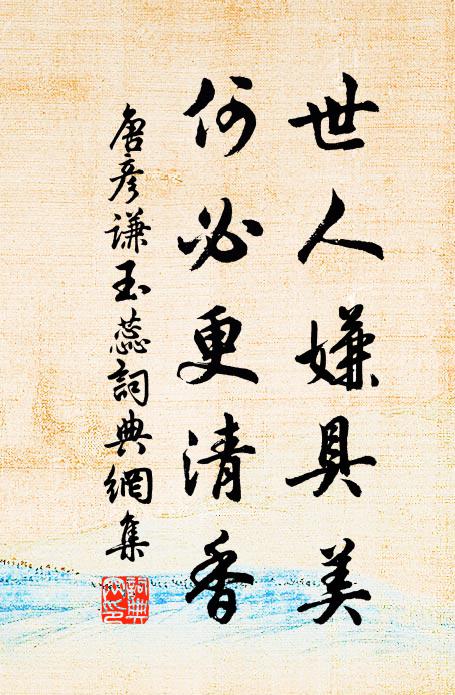 世人嫌具美
何必更清香
唐彦谦玉蕊詞典網集